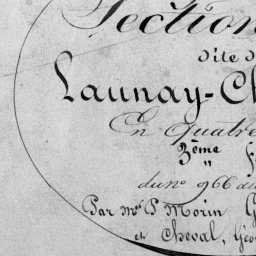 Section
dite d
Launay-Ch
En quatre
3ème f
du no 966 a
Par Mrs P Morin G
et Cheval, Géo